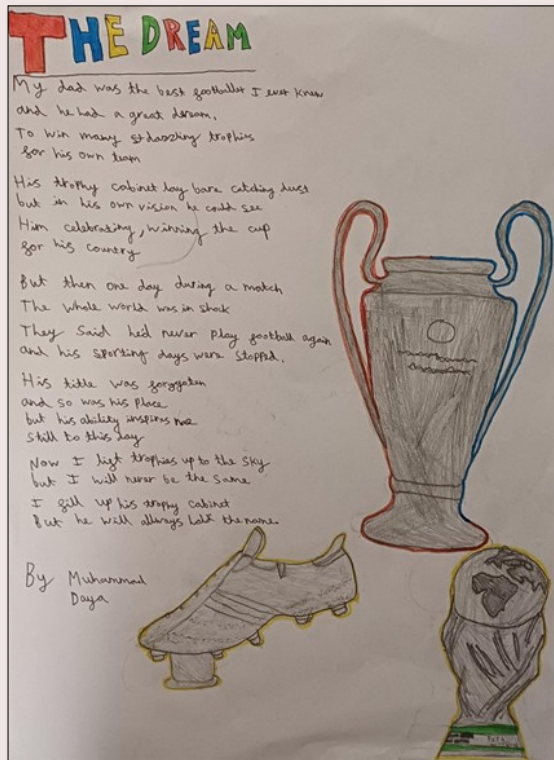 THE DREAM
My dad was the best footballer I ever knew
and he had a great dream.
To win many dazzling trophies
for his own team
His trophy cabinet lay bare catching dust
but in his own vision he could see
Him celebrating, winning the cup
for his country
But then one day during a match
The whole world was in shock
They said he'd never play football again
and his sporting days were stopped.
His title was forggaten
and so was his place
but his ability inspires me
still to this day
Now I lift trophies up to the sky
but I will never be the same
I fill up his trophy cabinet
But he will allways hold the name.
By Muhammad
Daya